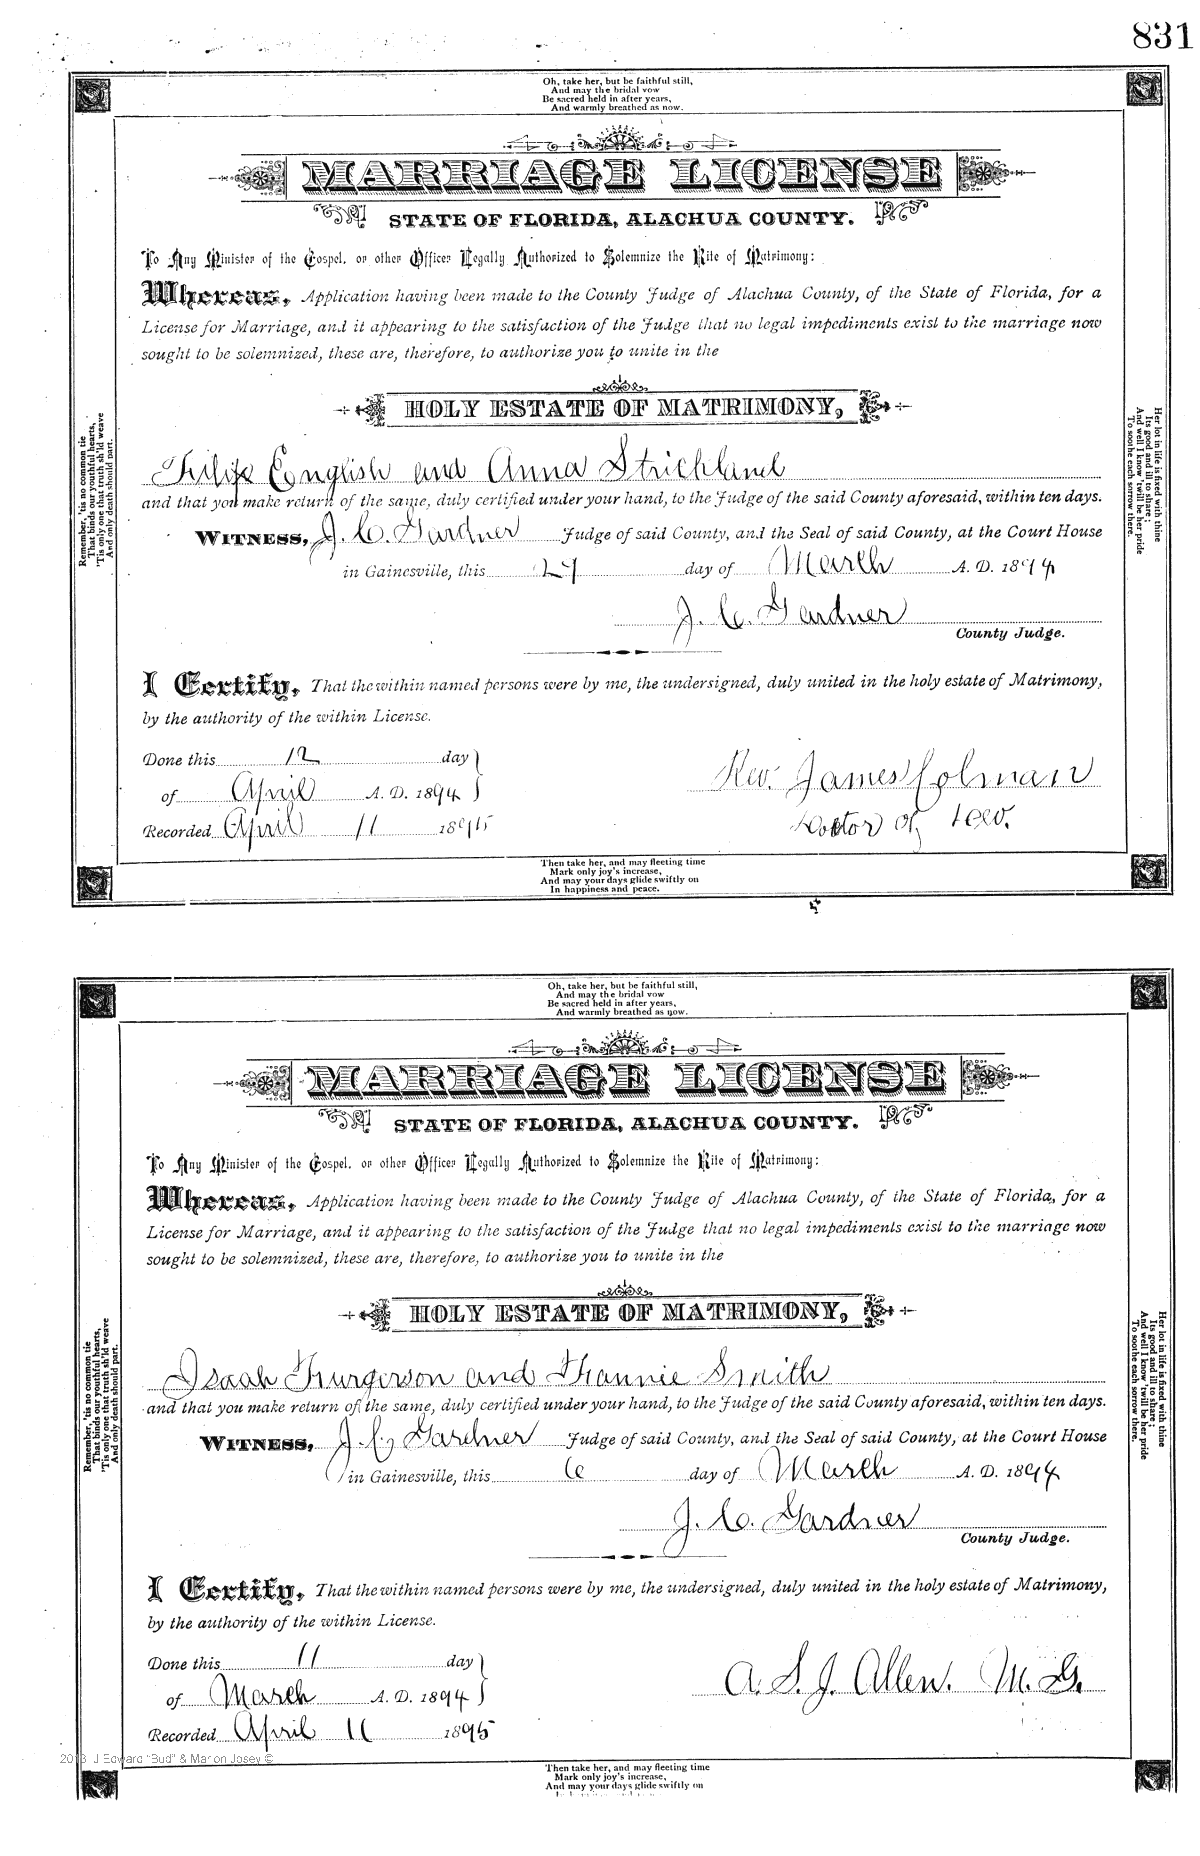 831
Oh, take her, but be faithful still,
And may the bridal vow
Be sacred held in after years,
And warmly breathed as now.
MARRIAGE LICENSE
STATE OF FLORIDA, ALACHUA COUNTY.
To Any Minister of the Gospel, or other Officer Legally Authorized to Solemnize the Rite of Matrimony:
Whereas, Application having been made to the County Judge of Alachua County, of the State of Florida, for a
License for Marriage, and it appearing to the satisfaction of the Judge that no legal impediments exist to the marriage now
sought to be solemnized, these are, therefore, to authorize you to unite in the
HOLY ESTATE OF MATRIMONY,
Filix English and Anna Strickland
and that you make return of the same, duly certified under your hand, to the Judge of the said County aforesaid, within ten days.
WITNESS, J. C. Gardner Judge of said County, and the Seal of said County, at the Court House
in Gainesville, this 27 day of March A. D. 1894
J. C. Gardner
County Judge.
I Certify, That the within named persons were by me, the undersigned, duly united in the holy estate of Matrimony,
by the authority of the within License.
Done this 12 day
of April A. D. 1894
Rev. James Colman
Recorded April 11 1895
Doctor of
Remember, 'tis no common tie
That binds our youthful hearts,
'Tis only one that truth sh'ld weave
And only death should part.
Her lot in life is fixed with thine
Its good and ill to share;
And well I know 'twill be her pride
To soothe each sorrow there.
Then take her, and may fleeting time
Mark only joy's increase,
And may your days glide swiftly on
In happiness and peace.
Oh, take her, but be faithful still,
And may the bridal vow
Be sacred held in after years,
And warmly breathed as now.
MARRIAGE LICENSE
STATE OF FLORIDA, ALACHUA COUNTY.
To Any Minister of the Gospel, or other Officer Legally Authorized to Solemnize the Rite of Matrimony:
Whereas, Application having been made to the County Judge of Alachua County, of the State of Florida, for a
License for Marriage, and it appearing to the satisfaction of the Judge that no legal impediments exist to the marriage now
sought to be solemnized, these are, therefore, to authorize you to unite in the
HOLY ESTATE OF MATRIMONY,
Isaah Furgerson and Fhannie Smith
and that you make return of the same, duly certified under your hand, to the Judge of the said County aforesaid, within ten days.
WITNESS, J. C. Gardner Judge of said County, and the Seal of said County, at the Court House
in Gainesville, this 6 day of March A. D. 1894
J. C. Gardner
County Judge.
I Certify, That the within named persons were by me, the undersigned, duly united in the holy estate of Matrimony,
by the authority of the within License.
Done this 11 day
of March A. D. 1894
A. S. J. Allen. M. G.
Recorded April 11 1895
Remember, 'tis no common tie
That binds our youthful hearts,
'Tis only one that truth sh'ld weave
And only death should part.
Her lot in life is fixed with thine
Its good and ill to share;
And well I know 'twill be her pride
To soothe each sorrow there.
2013 J Edward "Bud" & Marion Josey ©
Then take her, and may fleeting time
Mark only joy's increase,
And may your days glide swiftly on